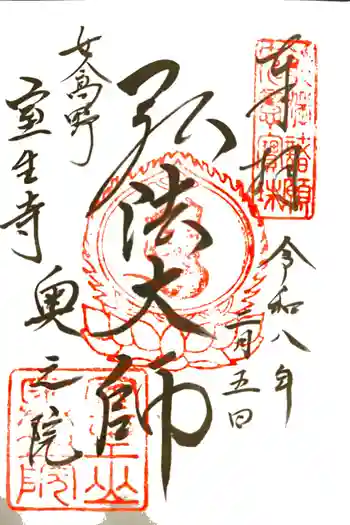 奉拝
令和八年
二月五日
弘法大師
女高野
室生寺
奥之院